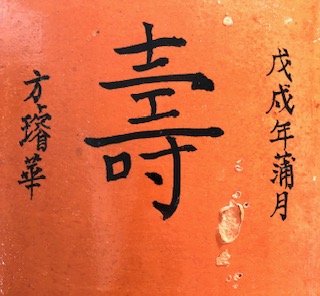 戊戌年蒲月
壽
方璿華